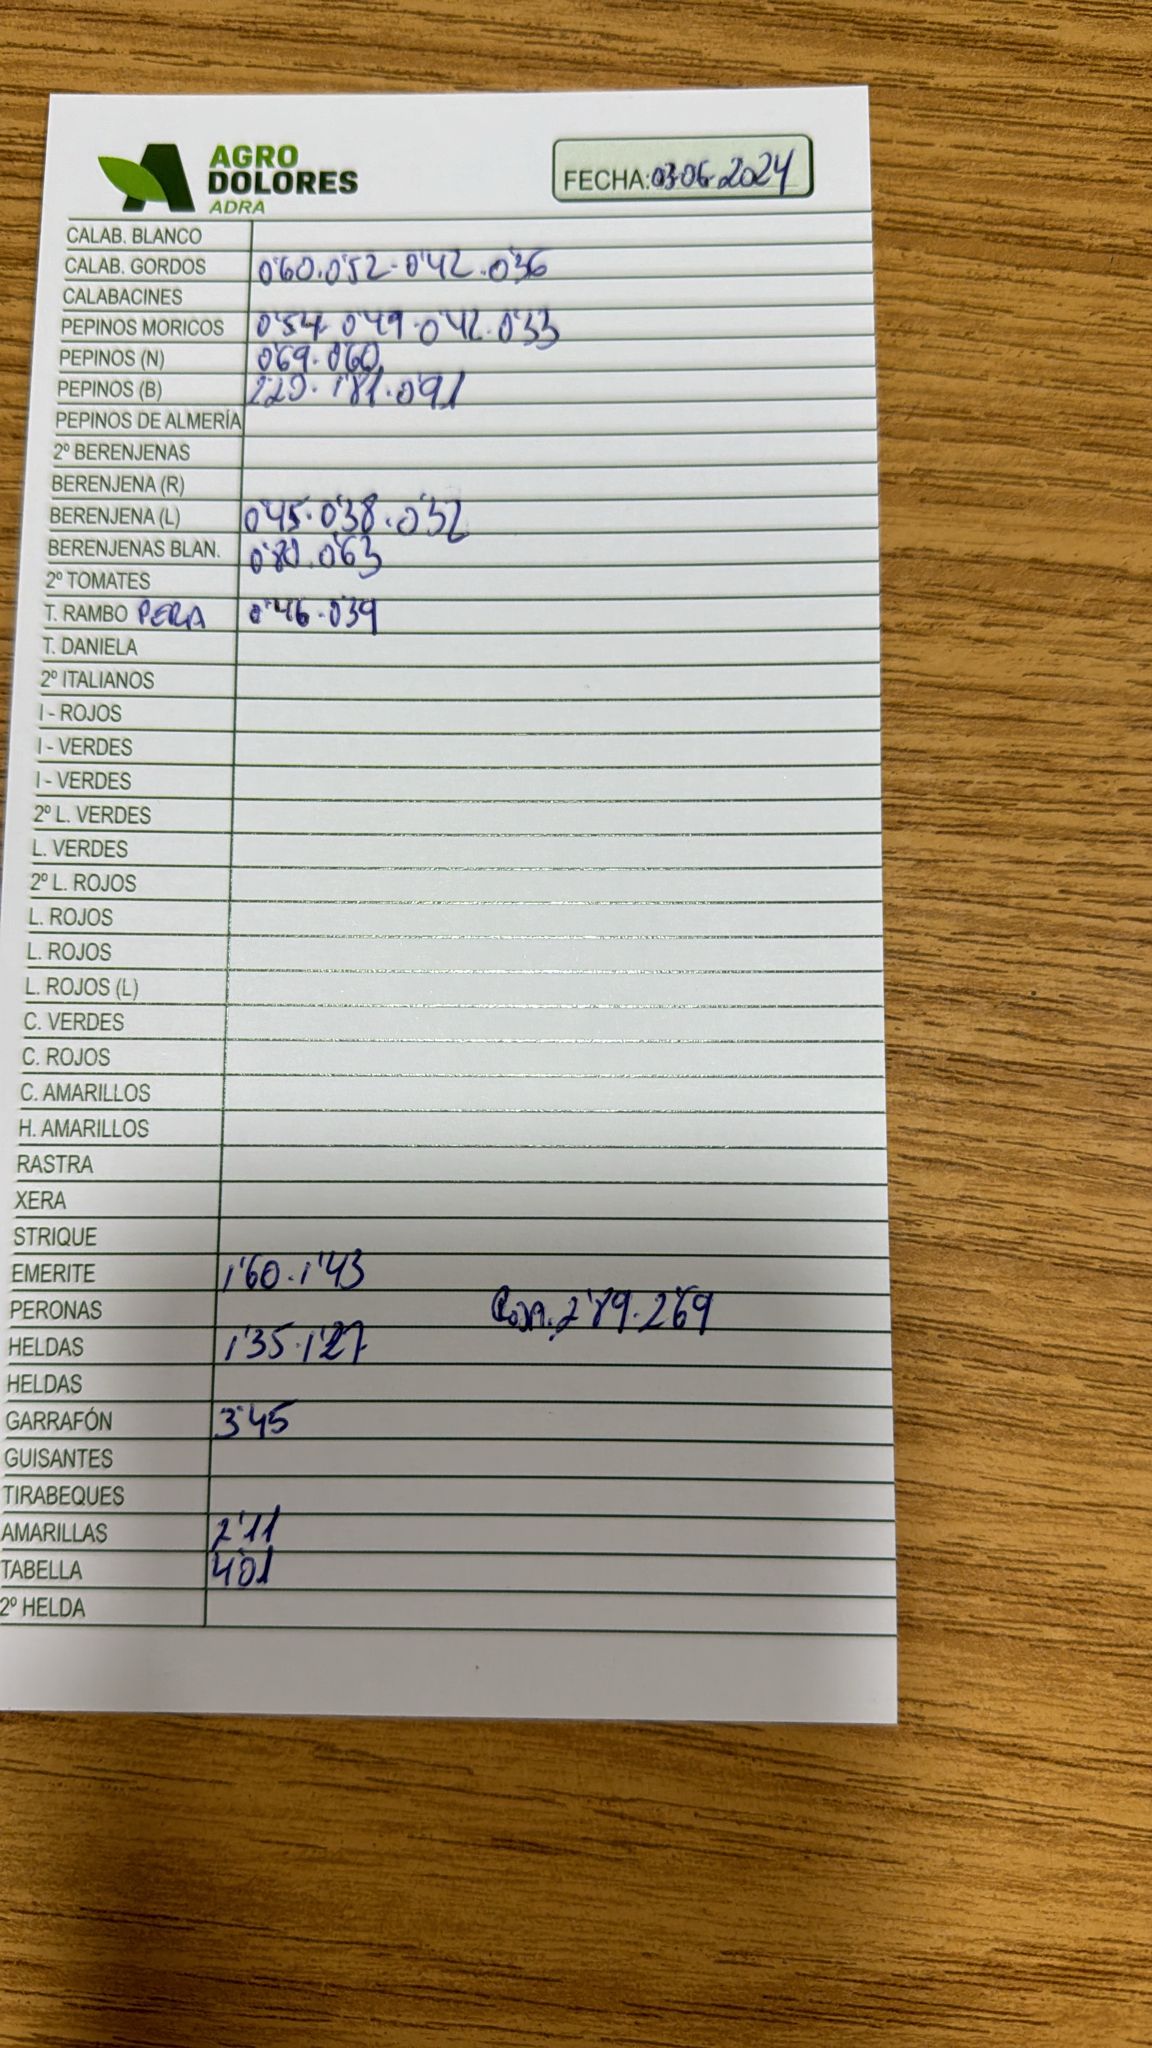 AGRO
DOLORES
ADRA
FECHA: 03-06-2024
CALAB. BLANCO
CALAB. GORDOS 0'60.0'52-0'42.0'36
CALABACINES
PEPINOS MORICOS 0'54-0'49-0'42-0'33
PEPINOS (N) 0'69.0'60
PEPINOS (B) 2'20.1'81.0'91
PEPINOS DE ALMERÍA
2º BERENJENAS
BERENJENA (R)
BERENJENA (L) 0'45.0'38.0'32
BERENJENAS BLAN. 0'80.0'63
2º TOMATES
T. RAMBO PERA 0'46.0'39
T. DANIELA
2º ITALIANOS
I - ROJOS
I - VERDES
I - VERDES
2º L. VERDES
L. VERDES
2º L. ROJOS
L. ROJOS
L. ROJOS
L. ROJOS (L)
C. VERDES
C. ROJOS
C. AMARILLOS
H. AMARILLOS
RASTRA
XERA
STRIQUE
EMERITE 1'60.1'43
PERONAS 2'89.2'69
HELDAS 1'35.1'27
HELDAS
GARRAFÓN 3'45
GUISANTES
TIRABEQUES
AMARILLAS 2'11
TABELLA 4'01
2º HELDA